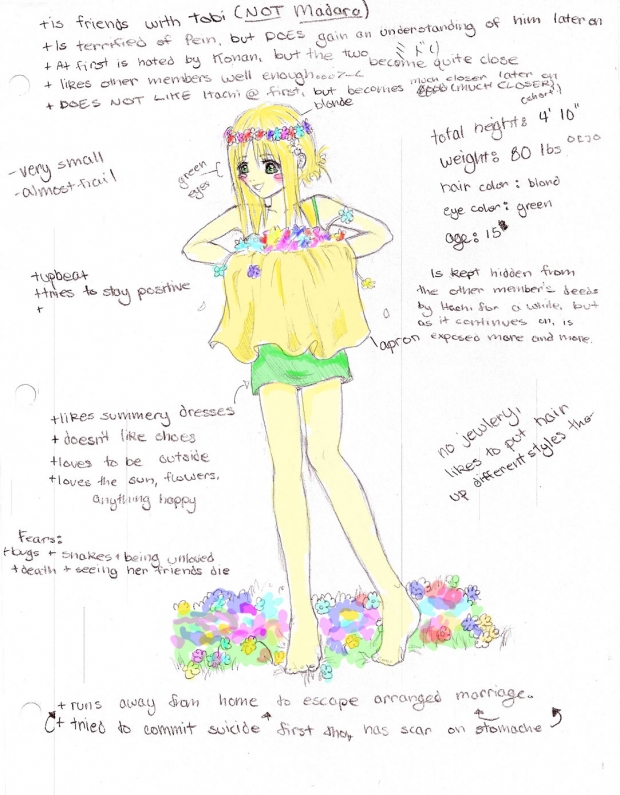 +is friends with tobi (NOT Madara)
+Is terrified of Pein, but DOES gain an understanding of him later on
+ At first is hated by Konan, but the two become quite close
+ likes other members well enough
+ DOES NOT LIKE Itachi @ first, but becomes much closer later on (MUCH CLOSER)
blonde
(short!)
total height: 4' 10"
weight: 80 lbs
hair color: blond
eye color: green
age: 15
-very small
-almost frail
green eyes
+upbeat
+tries to stay positive
+
Is kept hidden from
the other member's deeds
by Itachi for a while, but
as it continues on, is
exposed more and more.
apron
+likes summery dresses
+ doesn't like shoes
+loves to be outside
+loves the sun, flowers,
anything happy
no jewlery,
likes to put hair
up different styles tho
Fears:
+bugs + snakes + being unloved
+death + seeing her friends die
+ runs away from home to escape arranged marriage.
+ tried to commit suicide first tho, has scar on stomache